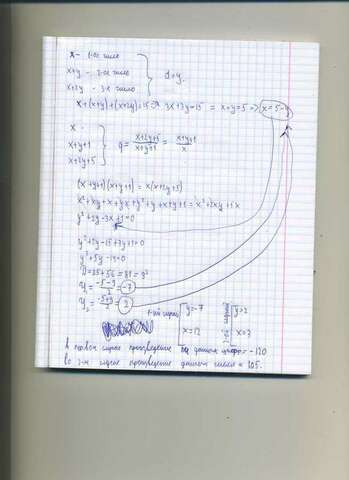 x - 1-ое число
x+y - 2-ое число
x+2y - 3-е число
d=y.
x+(x+y)+(x+2y)=15 => 3x+3y=15 = x+y=5 => x=5-y
x
x+y+1
x+2y+5
q = (x+2y+5)/(x+y+1) = (x+y+1)/x
(x+y+1)(x+y+1) = x(x+2y+5)
x²+xy+x+yx+y²+y+x+y+1 = x²+2xy+5x
y²+2y-3x+1=0
y²+2y-15+3y+1=0
y²+5y-14=0
D=25+56=81=9²
y₁ = (-5-9)/2 = -7
y₂ = (-5+9)/2 = 2
1-ый случай
y=-7
x=12
y=2
x=3
в первом случае произведение данных = -120
во 2-м случае произведение данных чисел = 105.